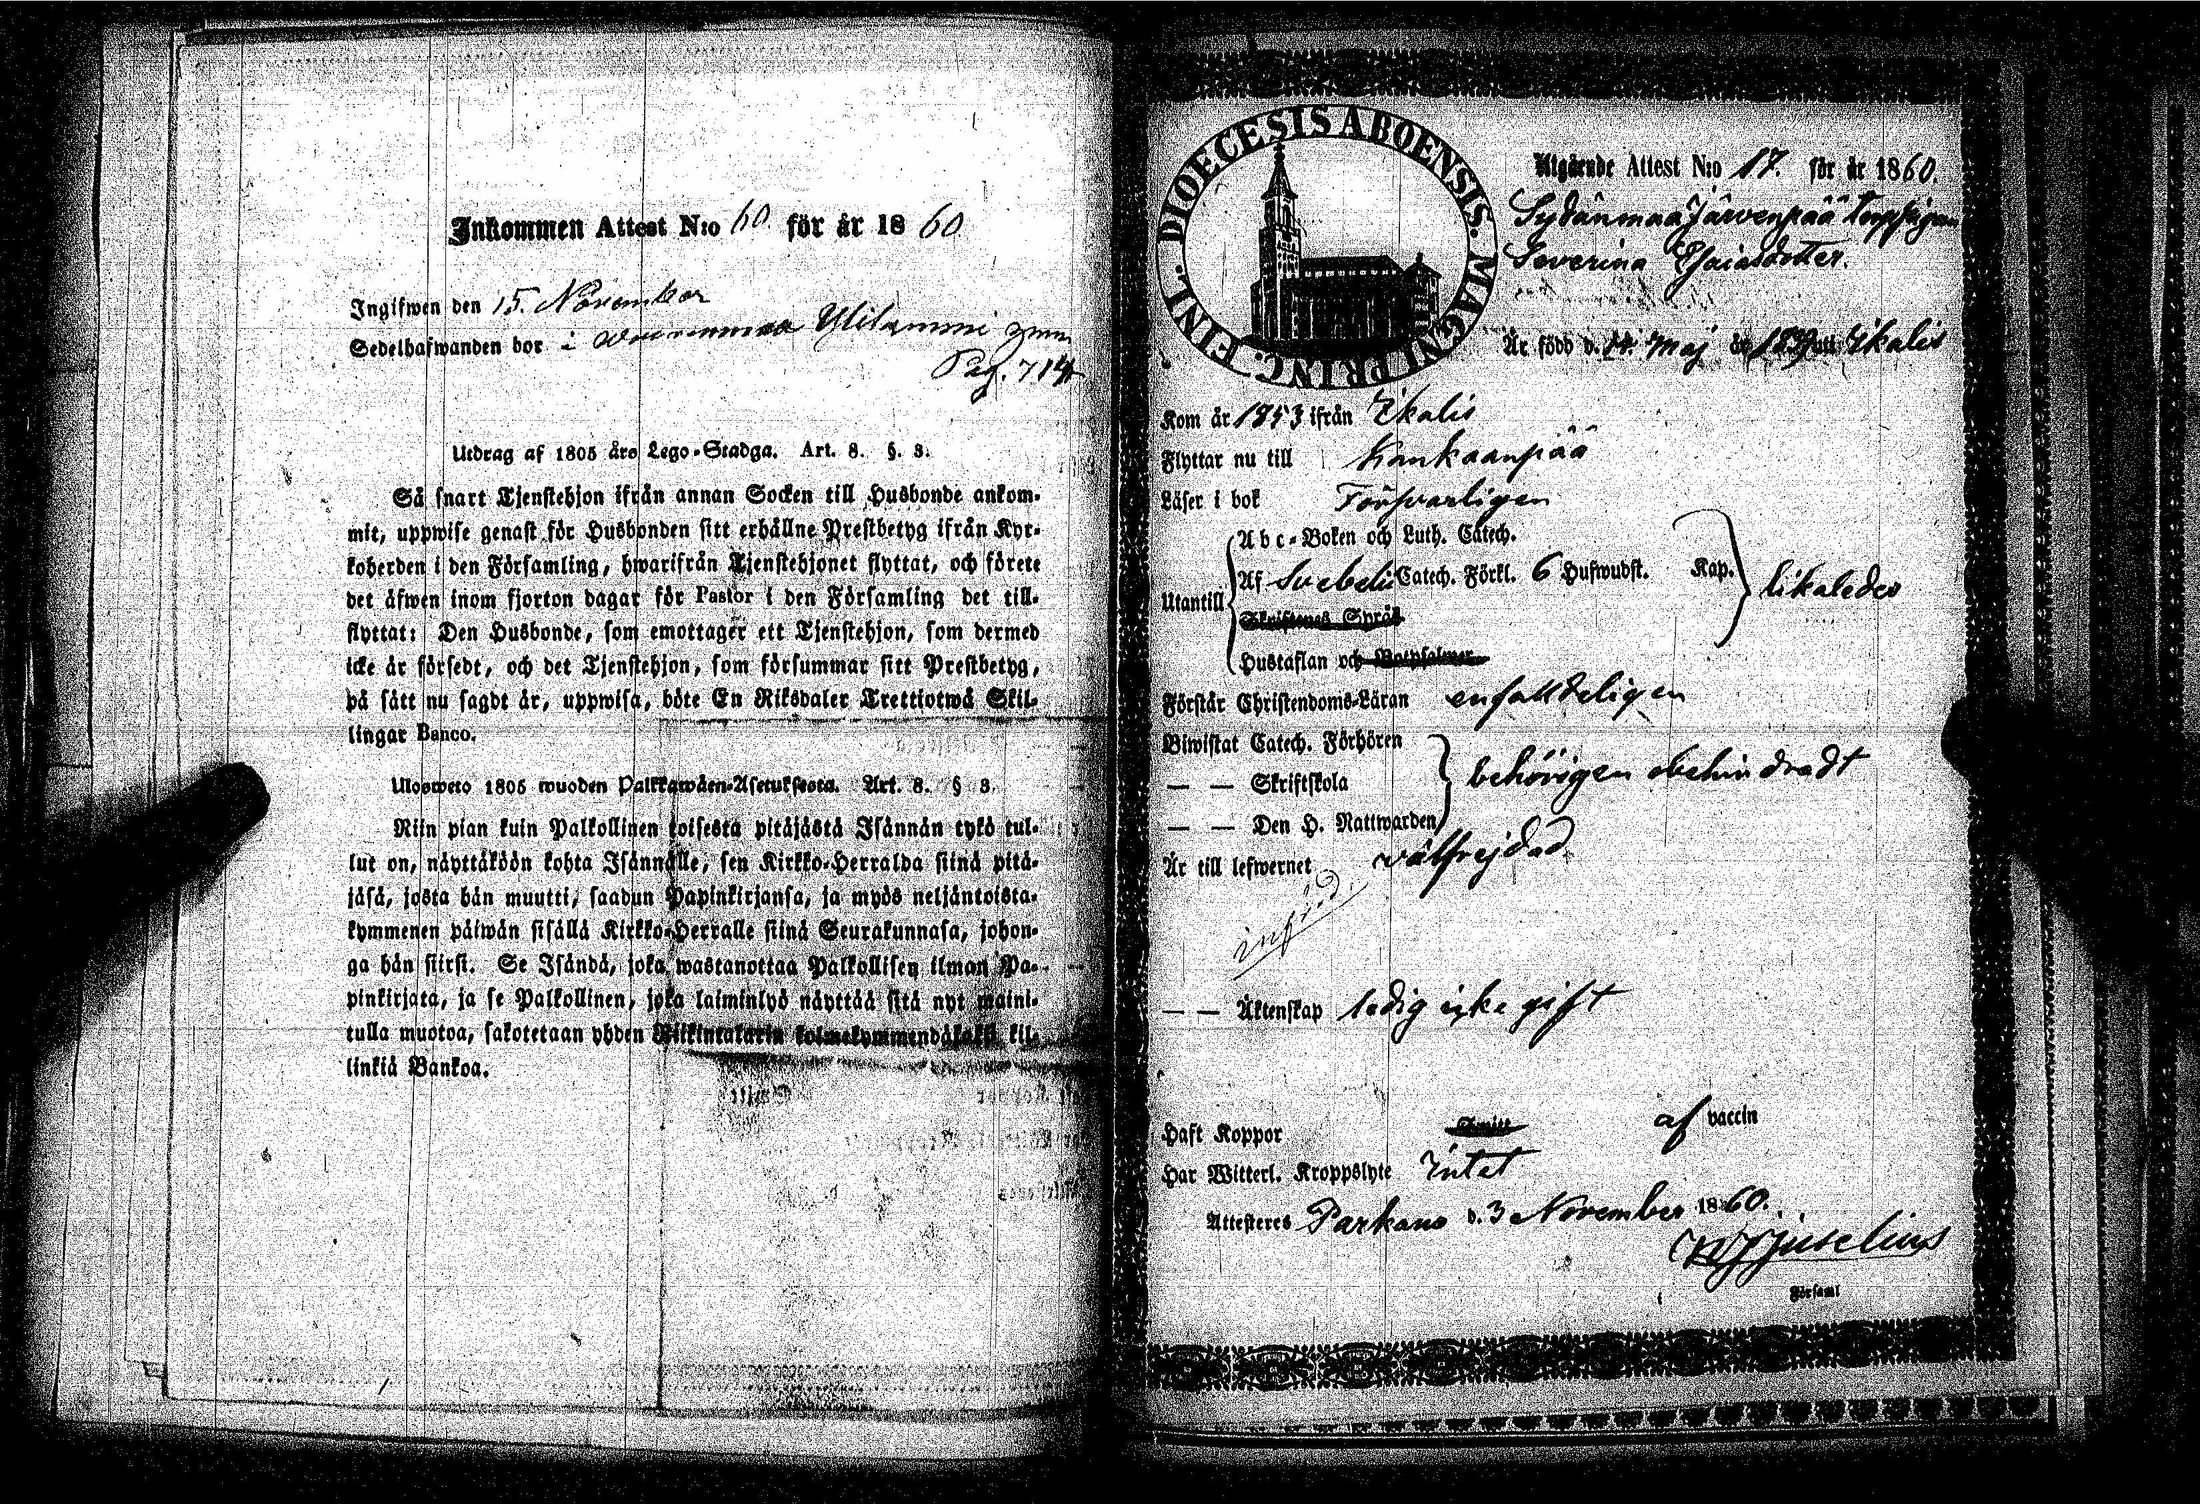 Inkommen Attest N:o 60. för år 1860
Ingifwen den 15. November
Sedelhafwanden bor i Ylilammi
Pag. 714
Utdrag af 1805 års Lego-Stadga. Art. 8. §. 3.
Så snart Tjenstehjon ifrån annan Socken till Husbonde ankom-
mit, uppwise genast för Husbonden sitt erhållne Prestbetyg ifrån Kyr-
koherden i den Församling, hwarifrån Tjenstehjonet flyttat, och förete
det äfwen inom fjorton dagar för Pastor i den Församling det till-
flyttat: Den Husbonde, som emottager ett Tjenstehjon, som dermed
icke är försedt, och det Tjenstehjon, som försummar sitt Prestbetyg,
på sätt nu sagdt är, uppwisa, böte En Riksdaler Trettiotwå Skil-
lingar Banco.
Ulosweto 1805 wuoden Palkkawäen-Asetuksesta. Art. 8. § 3.
Niin pian kuin Palkollinen toisesta pitäjästä Isännän tykö tul-
lut on, näyttäköön kohta Isännälle, sen Kirkko-Herralda siinä pitä-
jäsä, josta hän muutti, saadun Papinkirjansa, ja myös neljäntoista-
kymmenen päiwän sisällä Kirkko-Herralle siinä Seurakunnasa, johon-
ga hän siirsi. Se Isändä, joka wastanottaa Palkollisen ilman Pa-
pinkirjata, ja se Palkollinen, joka laiminlyö näyttää sitä nyt maini-
tulla muotoa, sakotetaan yhden Riikintalarin kolmekymmendäkaksi kil-
linkiä Bankoa.
DIOECESIS ABOENSIS. MAGNI PRINC. FINL.
Utgående Attest N:o 17. för år 1860.
Sydänmaa Järvenpää torppigan
Severina Esaiasdotter.
Är född d. 14. Maj år i Ikalis
Kom år 1853 ifrån Ikalis
Flyttar nu till Kankaanpää
Läser i bok Försvarligen
Abc-Boken och Luth. Catech.
Utantill Af Svebelii Catech. Förkl. 6 Hufwudst. Kap. likaledes
Skriftenes Språk
Hustaflan och Botpsalmer
Förstår Christendoms-Läran enfalldeligen
Biwistat Catech. Förhören
— — Skriftskola behörigen obehindradt
— — Den H. Nattwarden
Är till lefwernet välfrejdad
— — Äktenskap ledig icke gift
Haft Koppor Smitt af vaccin
Har Witterl. Kroppslyte Intet
Attesteres Parkano d. 3 November 1860.
Juselius
Församl